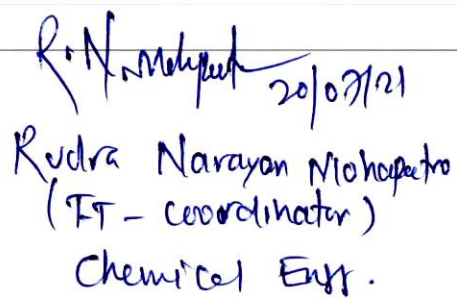 R.N. Mohapatra 20/07/21
Rudra Narayan Mohapatro
(FT - coordinator)
Chemical Engg.